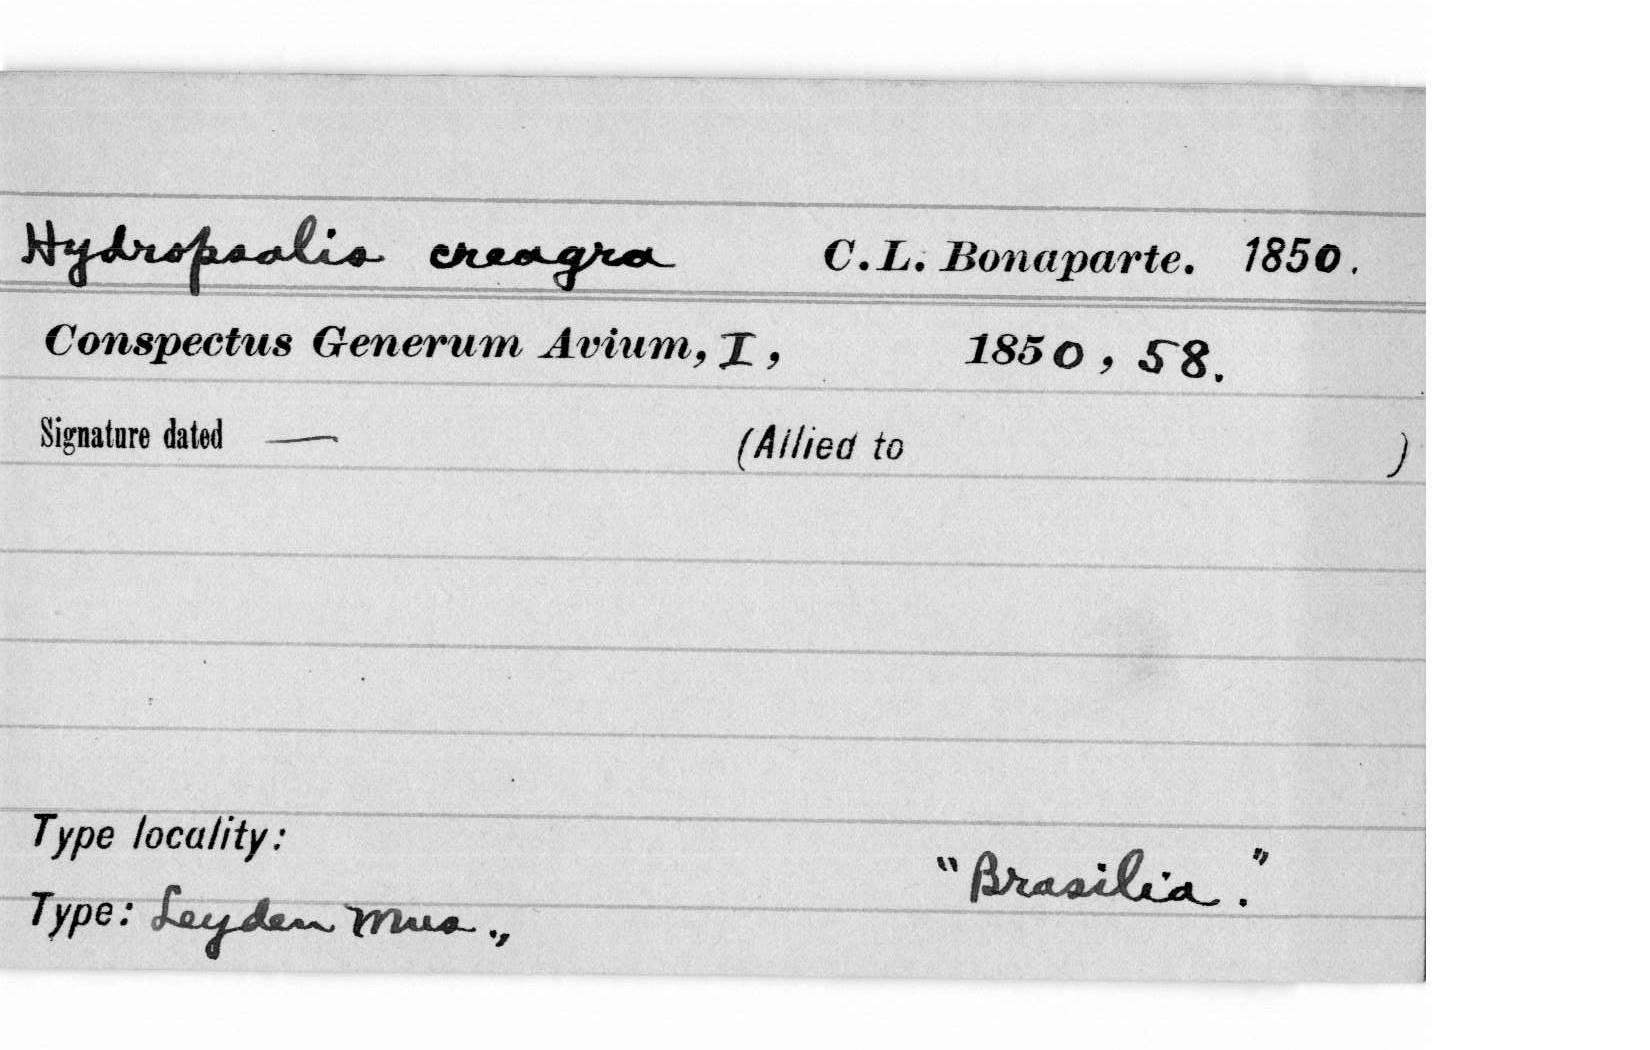 Hydropsalis creagra C.L. Bonaparte. 1850.
Conspectus Generum Avium, I, 1850, 58.
Signature dated — (Allied to )
Type locality:
"Brasilia."
Type: Leyden Mus.,